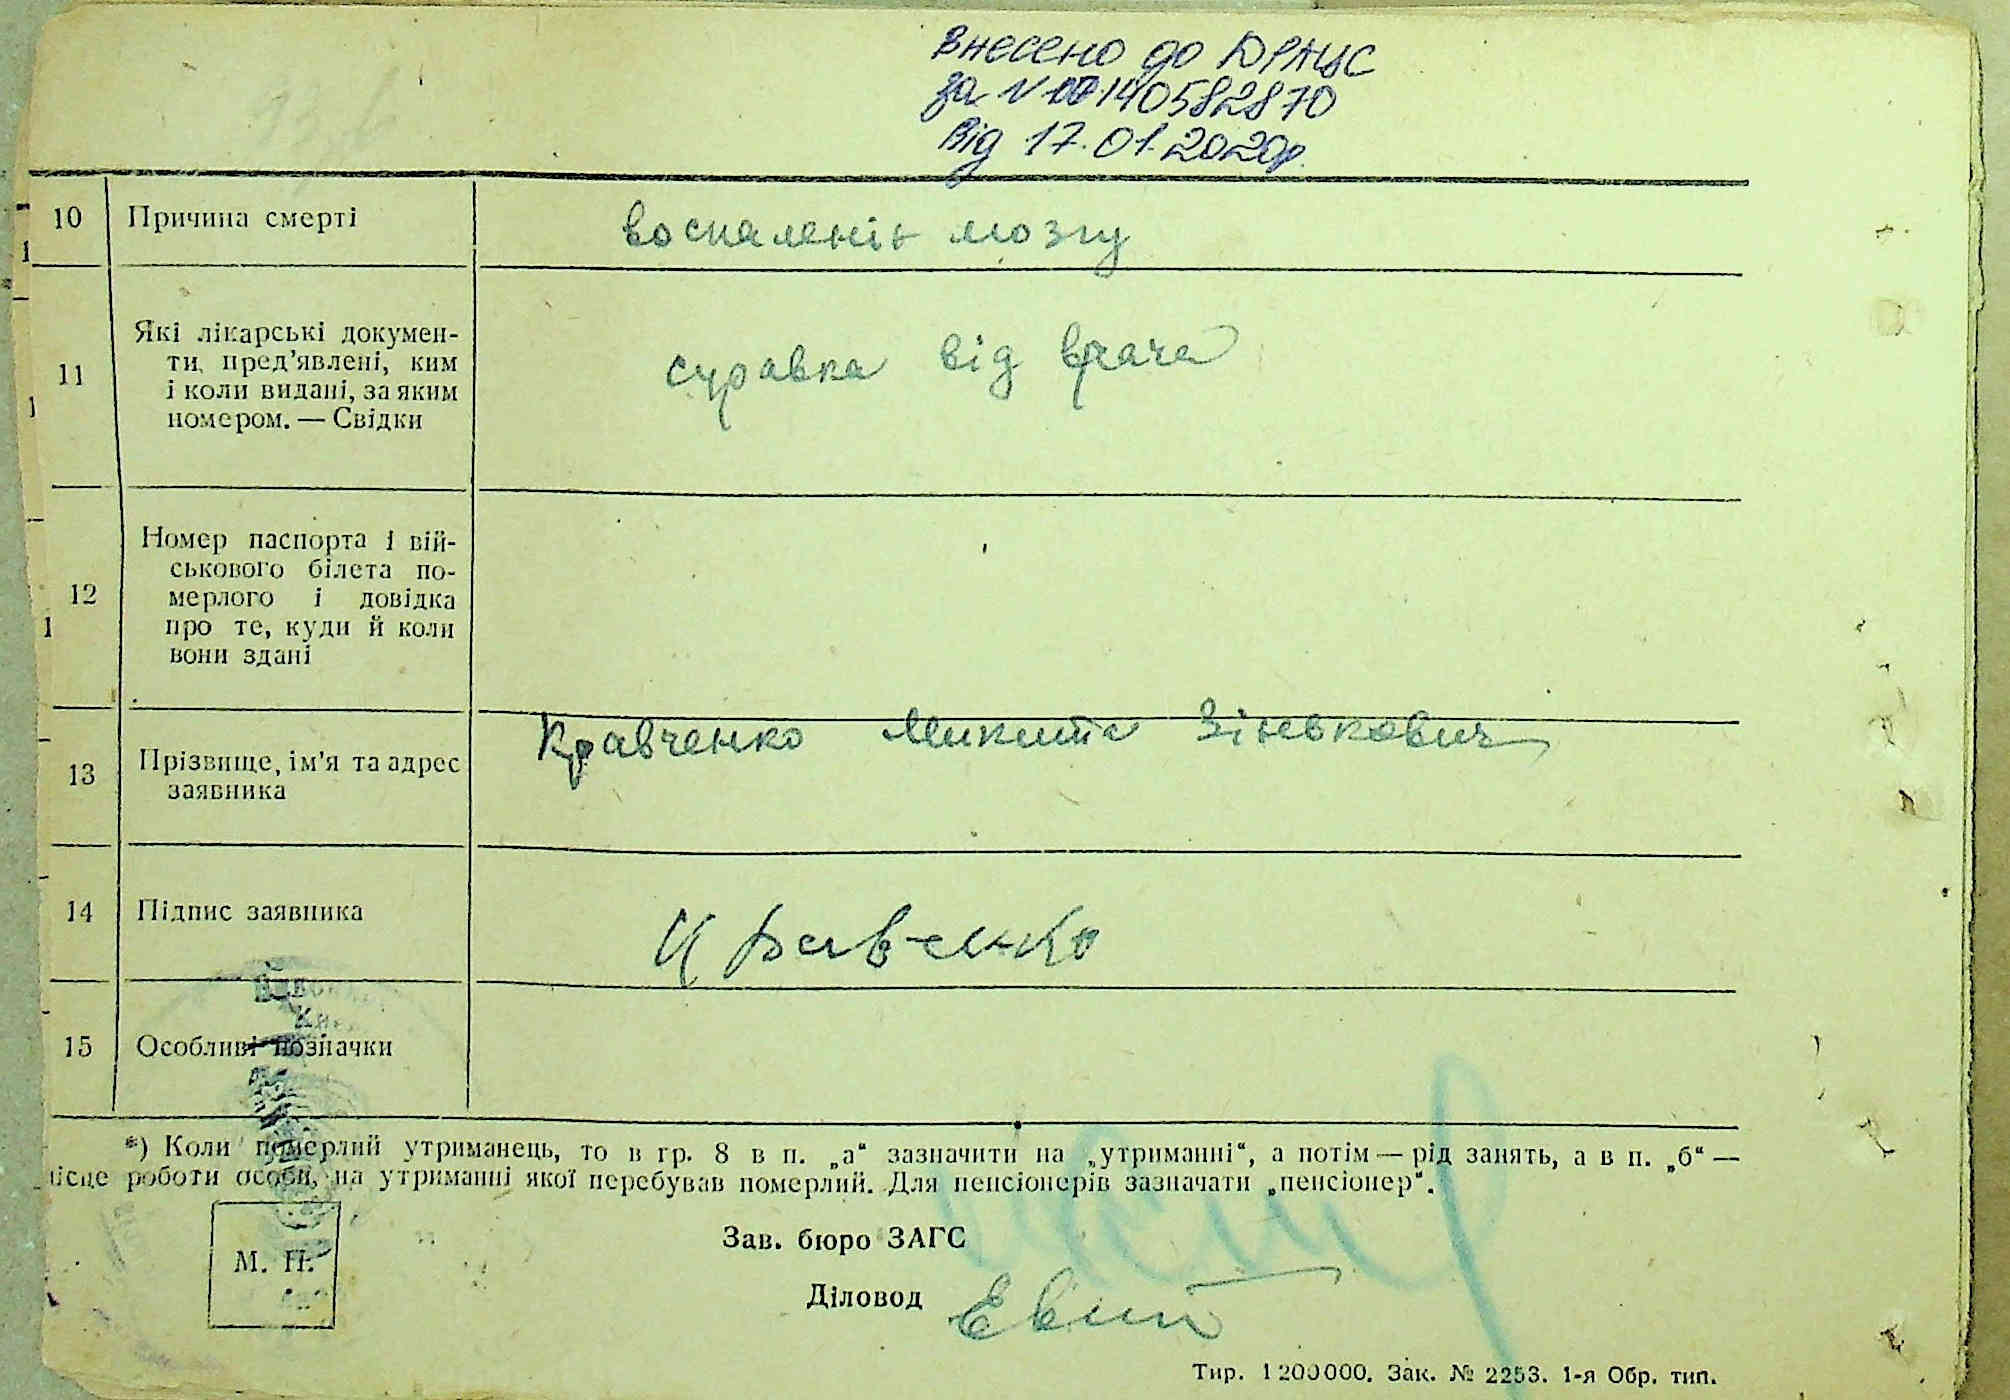 Внесено до ДРАЦС
за № 00140582870
Від 17.01.2020р.
10 Причина смерті воспаленія мозгу
11 Які лікарські докумен-
ти пред’явлені, ким
і коли видані, за яким
номером. — Свідки
справка від врача
12 Номер паспорта і вій-
ськового білета по-
мерлого і довідка
про те, куди й коли
вони здані
13 Прізвище, ім’я та адрес
заявника
Кравченко Микита Зіньković
14 Підпис заявника Кравченко
15 Особливі позначки
*) Коли померлий утриманець, то в гр. 8 в п. „а“ зазначити на „утриманні“, а потім — рід занять, а в п. „б“ —
місце роботи особи, на утриманні якої перебував померлий. Для пенсіонерів зазначати „пенсіонер“.
М. П.
Зав. бюро ЗАГС
Діловод
Тир. 1200000. Зак. № 2253. 1-я Обр. тип.